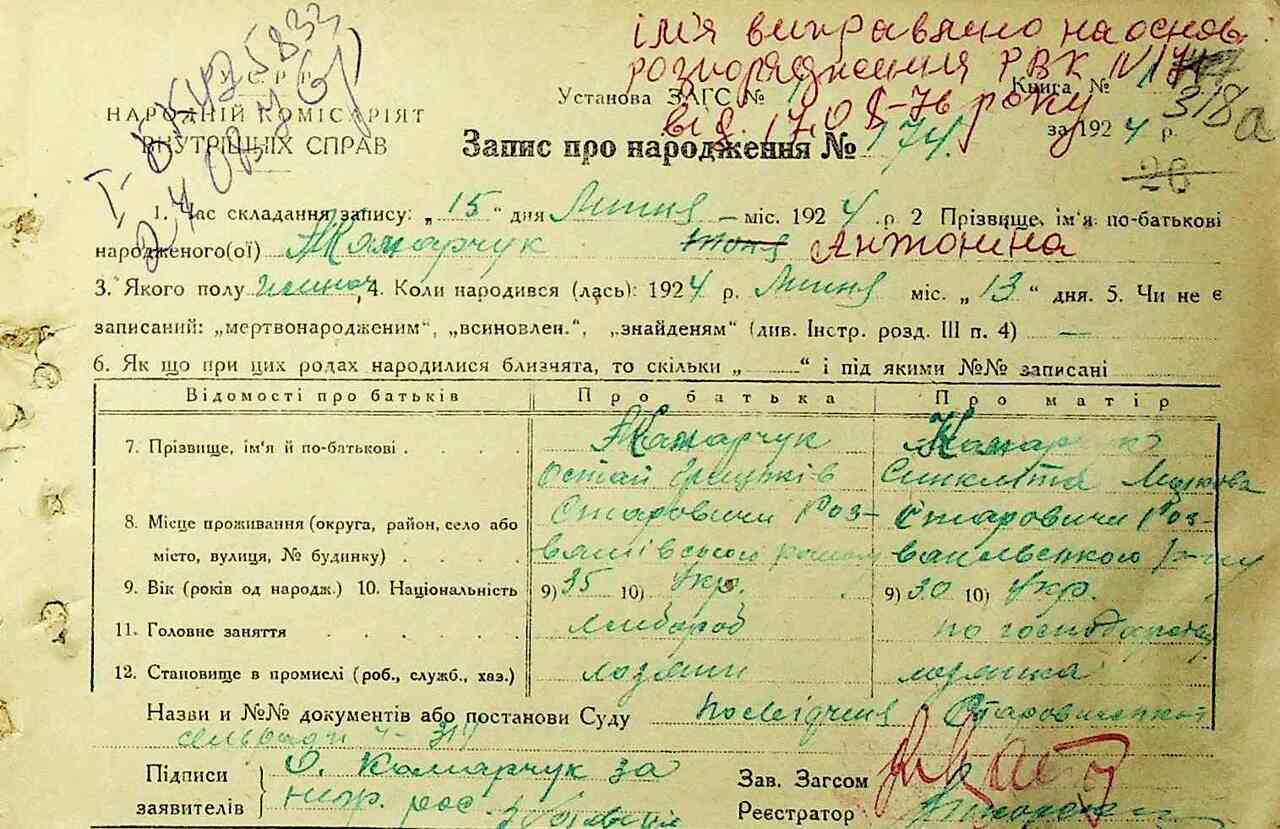 ім'я виправлено на основ.
розпорядження РВК
від. 17.08-76 року
У С Р Р
НАРОДНІЙ КОМІСАРІЯТ
ВНУТРІШНІХ СПРАВ
Установа ЗАГС № 1 Книга № 1
318а
за 1924 р.
Запис про народження № 174.
26
1. Час складання запису: „15“ дня Липня – міс. 1924 р. 2 Прізвище, ім'я по-батькові
народженого(ої) Комарчук Тоня Антонина
3. Якого полу 4. Коли народився (лась): 1924 р. Липня міс. „13“ дня. 5. Чи не є
записаний: „мертвонародженим“, „всиновлен.“, „знайденям“ (див. Інстр. розд. III п. 4) —
6. Як що при цих родах народилися близнята, то скільки „ “ і під якими №№ записані
Відомості про батьків Про батька Про матір
7. Прізвище, ім'я й по-батькові Комарчук Комарчук
Остап Грицьків Синклита
8. Місце проживання (округа, район, село або Старовичи Роз- Старовичи Роз-
місто, вулиця, № будинку) важівського району важівського р-ну
9. Вік (років од народж.) 10. Національність 9) 35 10) Укр. 9) 30 10) Укр.
11. Головне заняття хлібороб по господарству
12. Становище в промислі (роб., служб., хаз.)
Назви и №№ документів або постанови Суду Посвідченя Старовицької
сільради ч- 314
Підписи О. Комарчук за
заявителів непр. рос.
Зав. Загсом
Реєстратор